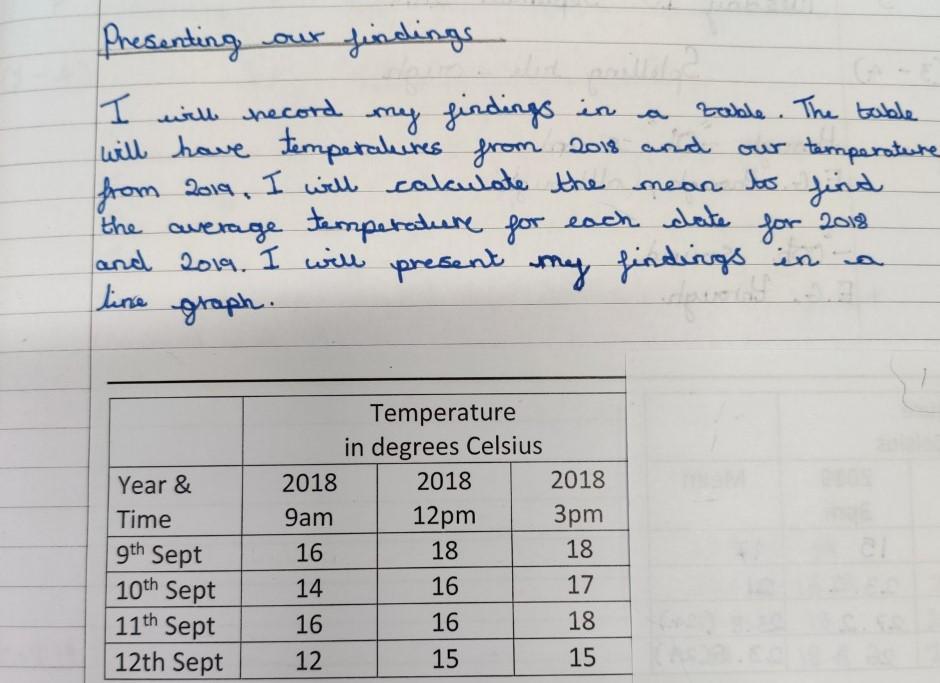 Presenting our findings
I will record my findings in a table. The table
will have temperatures from 2018 and our temperature
from 2019. I will calculate the mean to find
the average temperature for each date for 2018
and 2019. I will present my findings in a
line graph.
Temperature
in degrees Celsius
Year & 2018 2018 2018
Time 9am 12pm 3pm
9th Sept 16 18 18
10th Sept 14 16 17
11th Sept 16 16 18
12th Sept 12 15 15